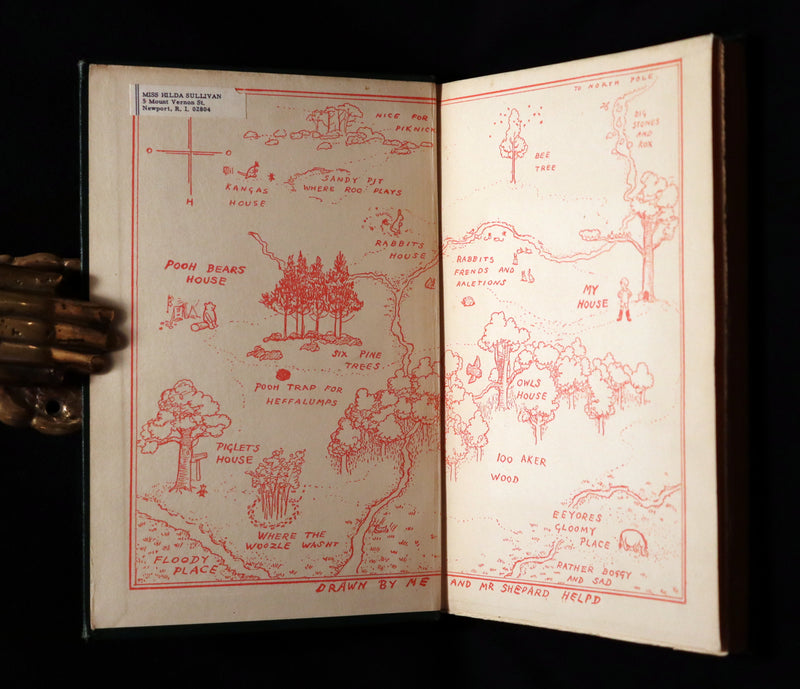 MISS HILDA SULLIVAN
5 Mount Vernon St.
Newport, R. I. 02804
NICE FOR
PIKNICKS
H
KANGAS
HOUSE
SANDY PIT
WHERE ROO PLAYS
RABBITS
HOUSE
POOH BEARS
HOUSE
SIX PINE
TREES
POOH TRAP FOR
HEFFALUMPS
PIGLETS
HOUSE
WHERE THE
WOOZLE WASNT
FLOODY
PLACE
TO NORTH POLE
BIG
STONES
AND
ROX
BEE
TREE
RABBITS
FRENDS AND
RALETIONS
MY
HOUSE
OWLS
HOUSE
100 AKER
WOOD
EEYORES
GLOOMY
PLACE
RATHER BOGGY
AND SAD
DRAWN BY ME AND MR SHEPARD HELPD